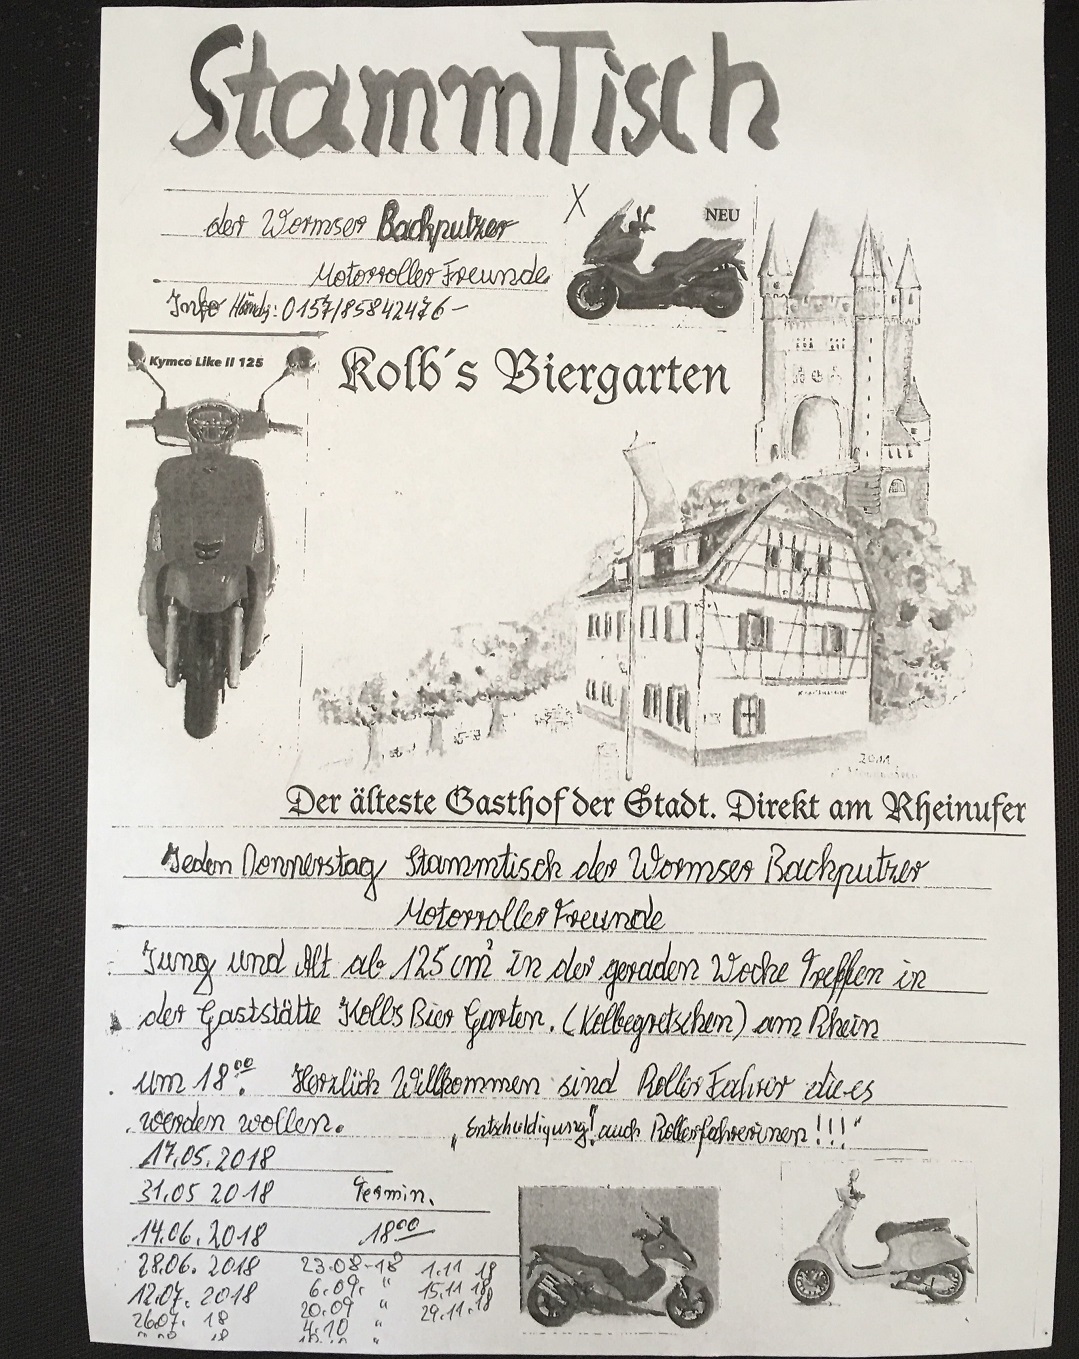 StammTisch
der Wormser Bachputzer
Motorroller Freunde
Info Handy: 0157/85842476-
X
NEU
Kymco Like II 125
Kolb´s Biergarten
2011
Der älteste Gasthof der Stadt. Direkt am Rheinufer
Jeden Donnerstag Stammtisch der Wormser Bachputzer
Motorroller Freunde
Jung und Alt ab 125 cm³ in der geraden Woche Treffen in
der Gaststätte Kolbs Bier Garten. (Kolbegretschen) am Rhein
um 18⁰⁰. Herzlich Willkommen sind Roller Fahrer die es
werden wollen. „Entschuldigung! auch Rollerfahrerinnen!!!"
17.05.2018
31.05 2018 Termin.
14.06.2018 18⁰⁰
28.06. 2018 23.08-18 1.11 18
12.07. 2018 6.09. " 15.11 18
26.07. 18 20.09 " 29.11.18
18 4.10 "